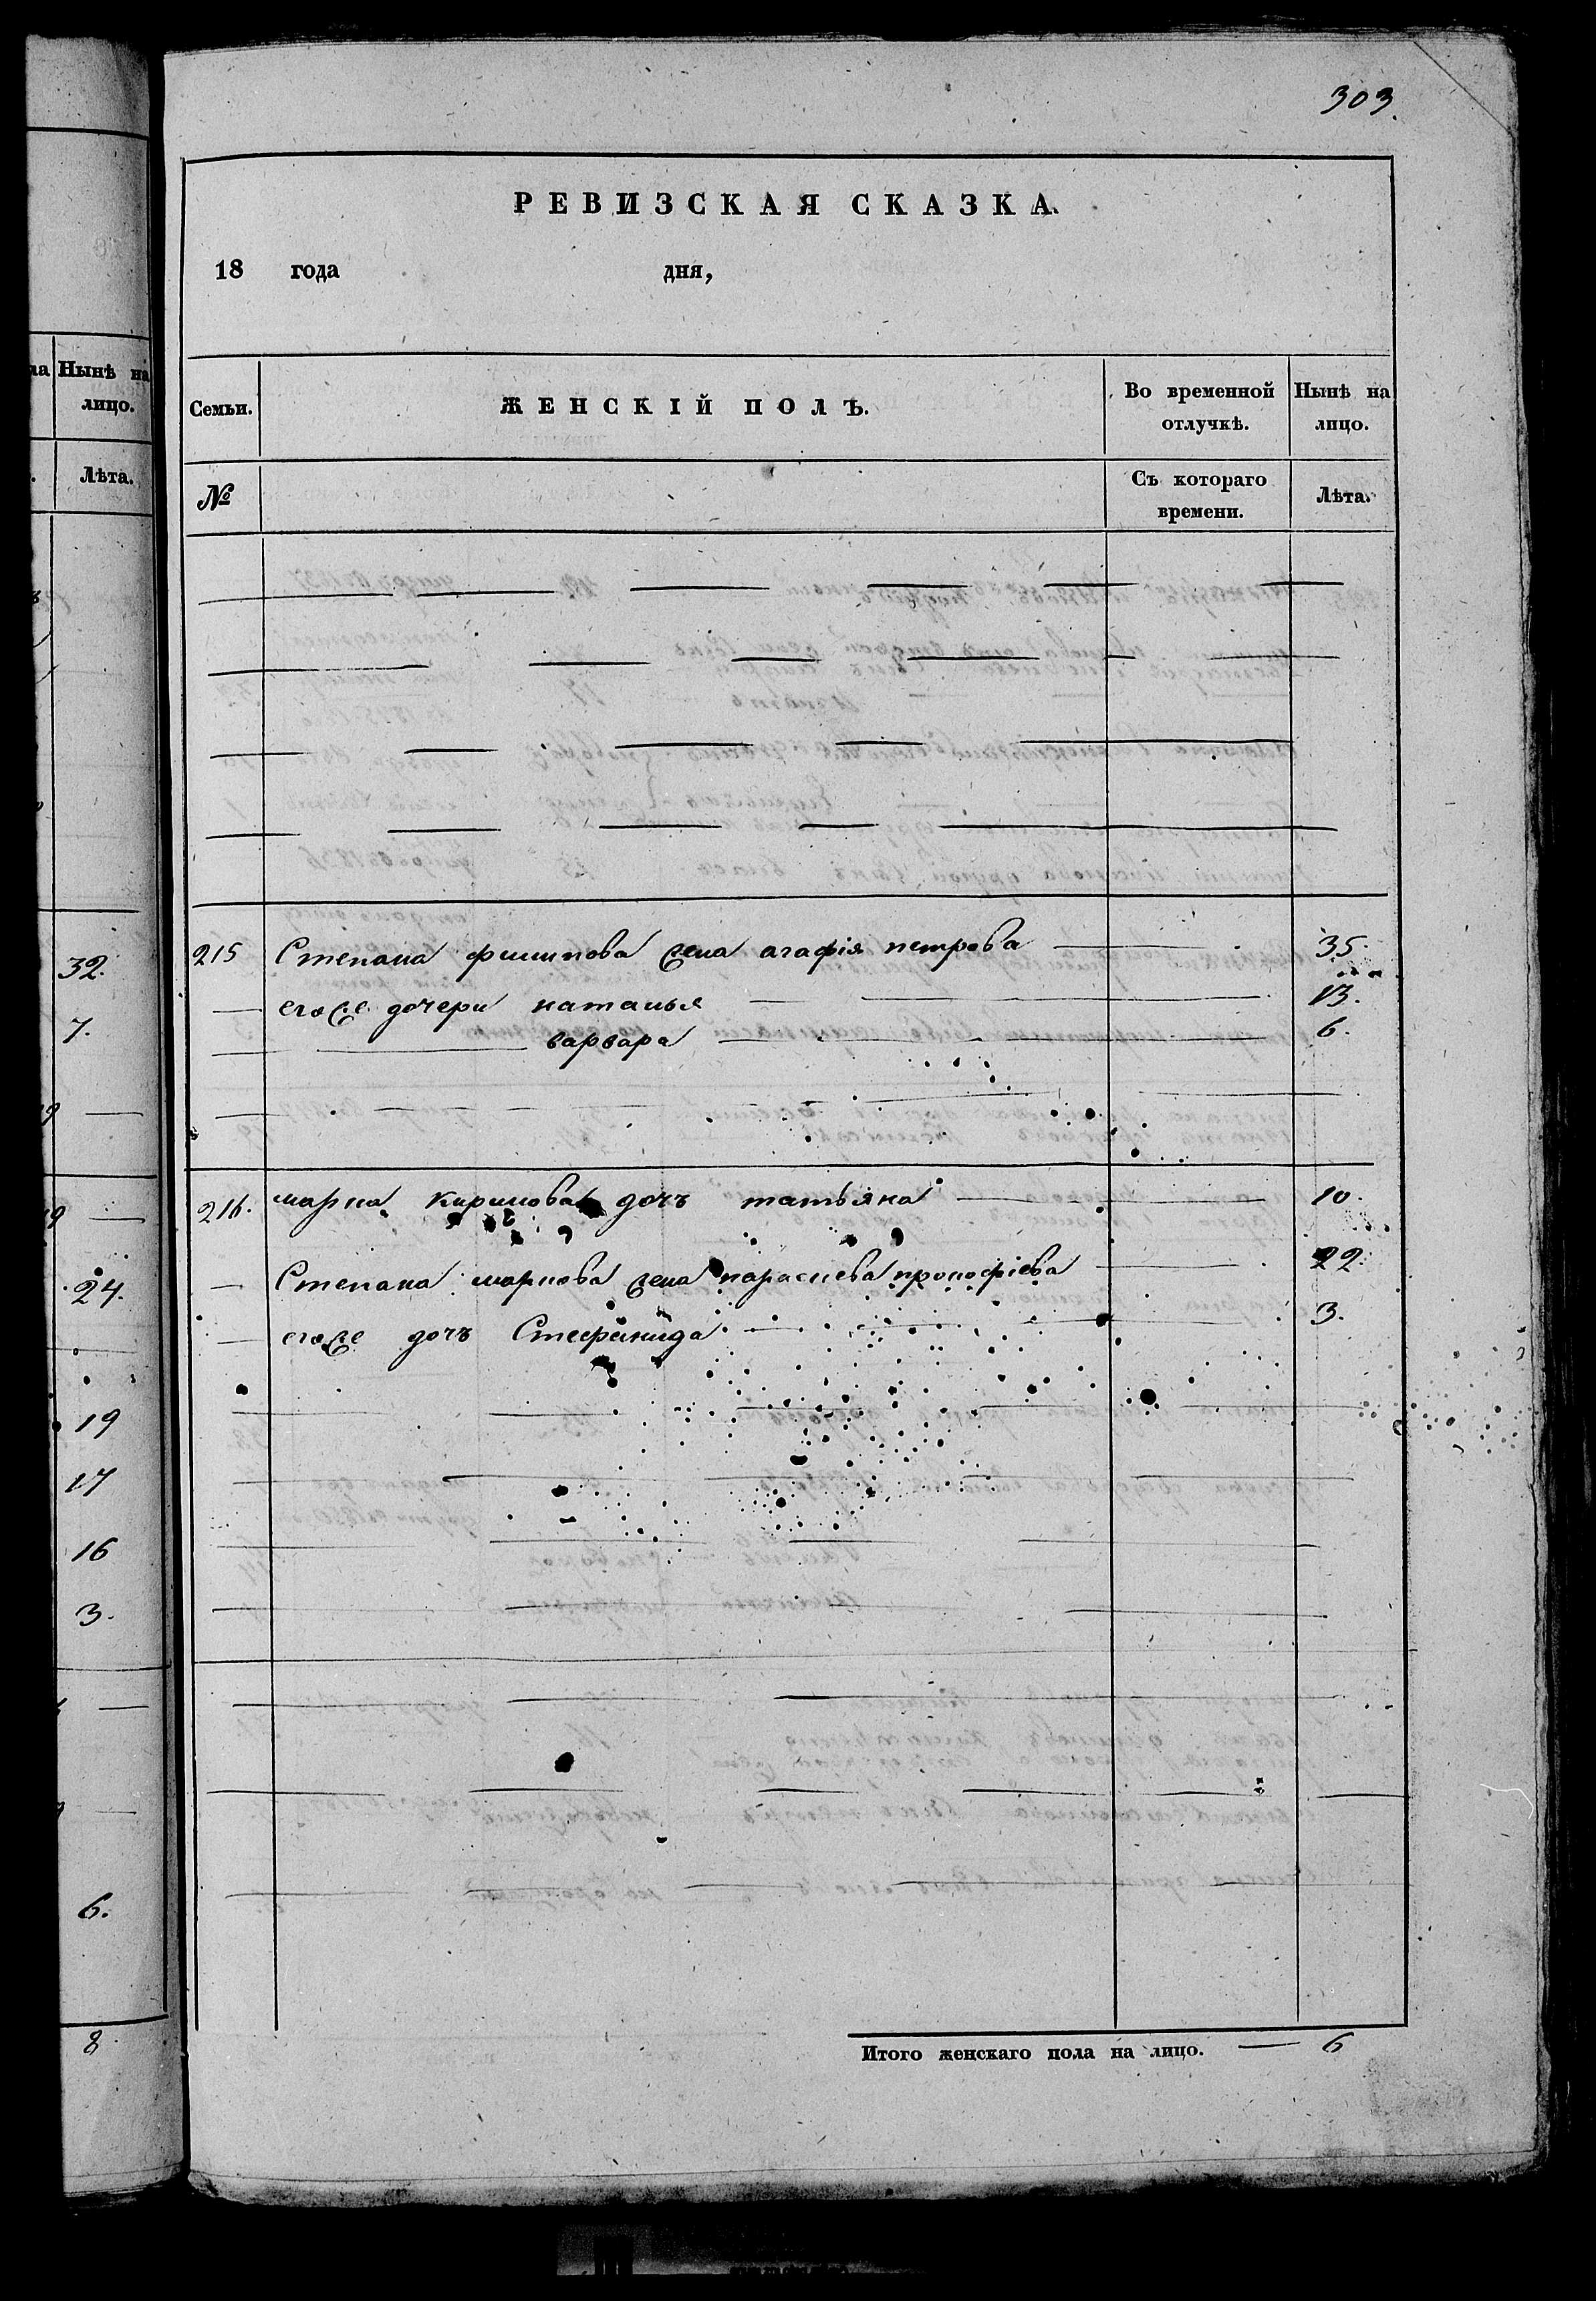 303.
РЕВИЗСКАЯ СКАЗКА.
18 года дня,
на Нынѣ на лицо.
Лѣта.
Семьи. ЖЕНСКІЙ ПОЛЪ. Во временной отлучкѣ. Нынѣ на лицо.
№ Съ котораго времени. Лѣта.
32.
7.
24.
19
17
16
3.
6.
8
215 Степана филипова жена агафія петрова 35.
егоже дочери наталья 13.
варвара 6.
216. марка кирилова дочь татьяна 10.
Степана маркова жена парасцева прокофіева 22.
егоже дочь Стефанида 3.
Итого женскаго пола на лицо. 6